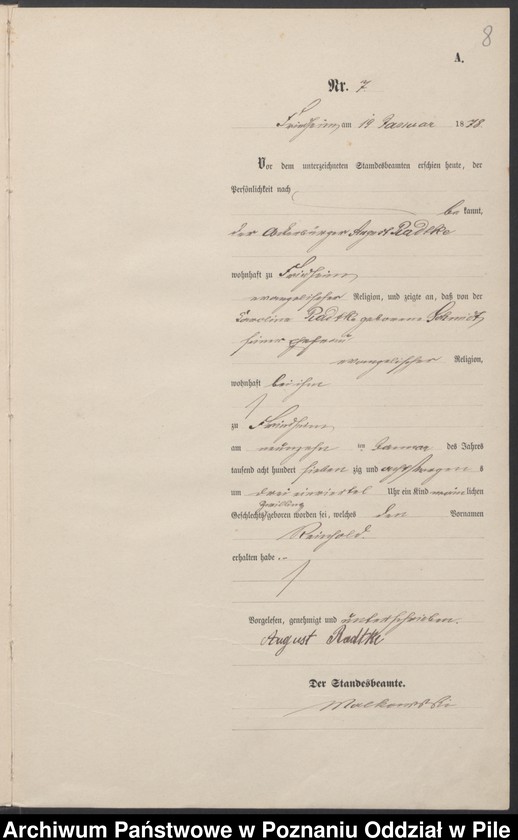 8
A.
Nr. 7
Friedheim, am 19 Januar 1878.
Vor dem unterzeichneten Standesbeamten erschien heute, der
Persönlichkeit nach
be kannt,
der Ackerbürger August Radtke
wohnhaft zu Friedheim
evangelischer Religion, und zeigte an, daß von der
Caroline Radtke geborene Schmidt,
seiner Ehefrau
evangelischer Religion,
wohnhaft bei ihm
zu Friedheim
am neunzehn ten Januar des Jahres
tausend acht hundert sieben zig und acht s
um drei ein viertel Uhr ein Kind männ lichen
Zwilling
Geschlechts geboren worden sei, welches den Vornamen
Reinhold
erhalten habe.
Vorgelesen, genehmigt und unterschrieben.
August Radtke
Der Standesbeamte.
Malkowski
Archiwum Państwowe w Poznaniu Oddział w Pile